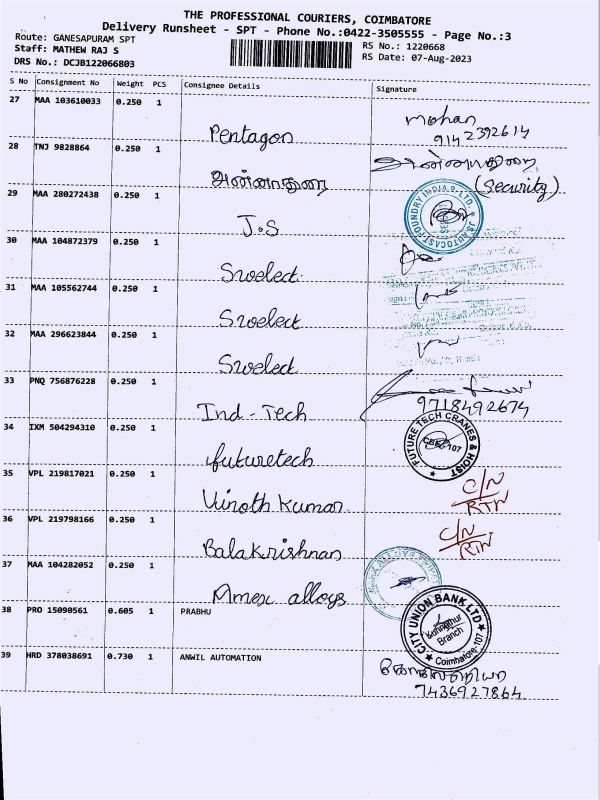 THE PROFESSIONAL COURIERS, COIMBATORE
Delivery Runsheet - SPT - Phone No.:0422-3505555 - Page No.:3
Route: GANESAPURAM SPT
RS No.: 1220668
Staff: MATHEW RAJ S
RS Date: 07-Aug-2023
DRS No.: DCJB122066803
S No Consignment No Weight PCS Consignee Details Signature
27 MAA 103610033 0.250 1 Pentagon mohan
9142392614
28 TNJ 9828864 0.250 1 அண்ணாதுரை அண்ணாதுரை
(Security)
29 MAA 280272438 0.250 1 J.S
30 MAA 104872379 0.250 1 Swelect
31 MAA 105562744 0.250 1 Swelect
32 MAA 296623844 0.250 1 Swelect
33 PNQ 756876228 0.250 1 Ind-Tech
9718492674
34 IXM 504294310 0.250 1 futuretech FUTURE TECH CRANES & HOIST
CBE 107
35 VPL 219817021 0.250 1 Vinoth Kumar C/N
RTN
36 VPL 219798166 0.250 1 Balakrishnan C/N
RTN
37 MAA 104282052 0.250 1 Mmex alloys
38 PRO 15090561 0.605 1 PRABHU CITY UNION BANK LTD
Branch
Coimbatore-107
39 HRD 378038691 0.730 1 ANWIL AUTOMATION
7436927864